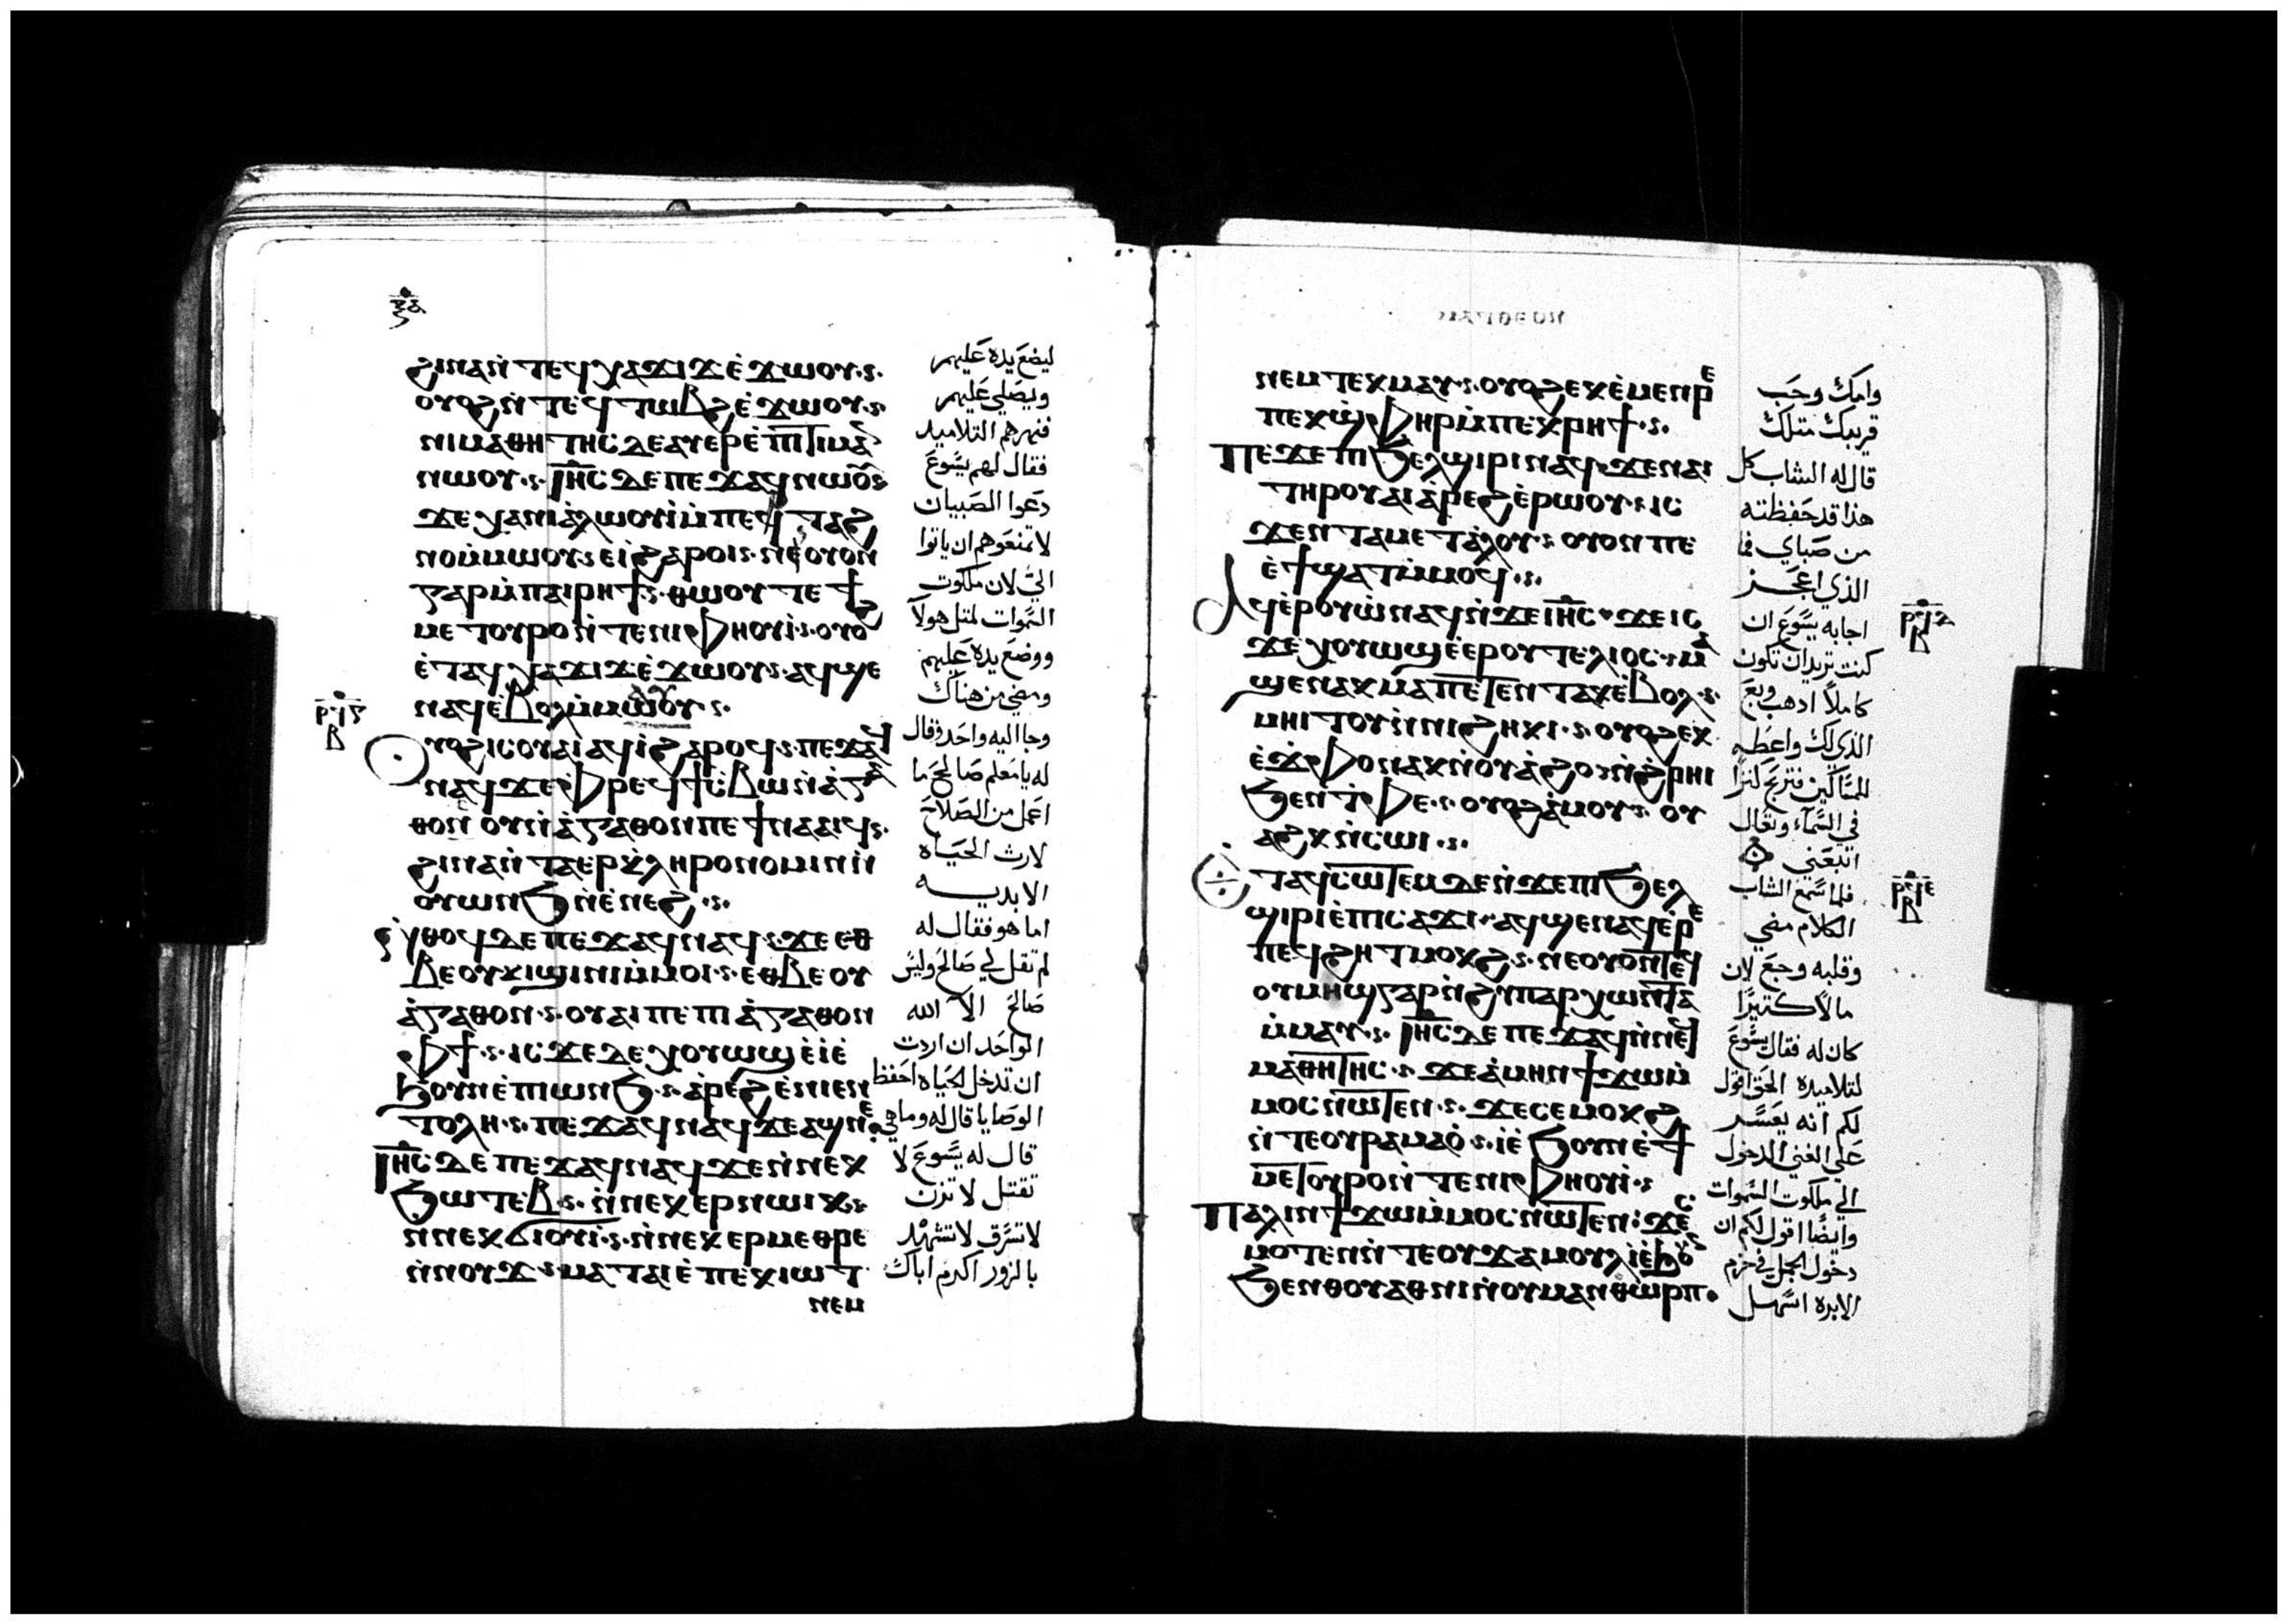 ϩⲓⲛⲁ ⲛ̀ⲧⲉϥⲭⲁϫⲓϫ ⲉ̀ϫⲱⲟⲩ
ⲟⲩⲟϩ ⲛ̀ⲧⲉϥⲧⲱⲃϩ ⲉ̀ϫⲱⲟⲩ
ⲛⲓⲙⲁⲑⲏⲧⲏⲥ ⲇⲉ ⲁⲩⲉⲣⲉ̀ⲡⲓⲧⲓⲙⲁⲛ
ⲛⲱⲟⲩ ⲓⲏ̅ⲥ ⲇⲉ ⲡⲉϫⲁϥ ⲛⲱⲟⲩ
ϫⲉ ⲭⲁ ⲛⲓⲁ̀ⲗⲱⲟⲩⲓ̀ ⲙ̀ⲡⲉⲣⲧⲁϩ
ⲛⲟ ⲙ̀ⲙⲱⲟⲩ ⲉⲓ̀ ϩⲁⲣⲟⲓ
ⲅⲁⲣ ⲙ̀ⲡⲁⲓⲣⲏϯ ⲑⲱⲟⲩ ⲧⲉ ϯ
ⲙⲉⲧⲟⲩⲣⲟ ⲛ̀ⲧⲉ ⲛⲓⲫⲏⲟⲩⲓ̀ ⲟⲩⲟϩ
ⲉ̀ⲧⲁϥⲭⲁϫⲓϫ ⲉ̀ϫⲱⲟⲩ ⲁϥϣⲉ
ⲛⲁϥ ⲉ̀ⲃⲟⲗ ⲙ̀ⲙⲁⲩ
ⲟⲩⲟϩ ⲓⲥ ⲟⲩⲁⲓ ⲁϥⲓ̀ ϩⲁⲣⲟϥ ⲡⲉϫⲁϥ
ⲛⲁϥ ϫⲉ ⲫⲣⲉϥϯⲥ̀ⲃⲱ ⲛ̀ⲁ̀ⲅⲁ
ⲑⲟⲛ ⲟⲩ ⲛ̀ⲁ̀ⲅⲁⲑⲟⲛ ⲡⲉϯⲛⲁⲁⲓϥ
ϩⲓⲛⲁ ⲛ̀ⲧⲁⲉⲣⲕ̀ⲗⲏⲣⲟⲛⲟⲙⲓⲛ ⲛ̀
ⲟⲩⲱⲛϧ ⲛ̀ⲉⲛⲉϩ
ⲛ̀ⲑⲟϥ ⲇⲉ ⲡⲉϫⲁϥ ⲛⲁϥ ϫⲉ ⲉⲑ
ⲃⲉ ⲟⲩ ⲕϣⲓⲛⲓ ⲙ̀ⲙⲟⲓ ⲉⲑⲃⲉ ⲟⲩ
ⲁ̀ⲅⲁⲑⲟⲛ ⲟⲩⲁⲓ ⲡⲉ ⲡⲓⲁ̀ⲅⲁⲑⲟⲛ
ⲫϯ ⲓⲥϫⲉ ⲇⲉ ⲭⲟⲩⲱϣ ⲉ̀ⲓ̀ ⲉ̀
ϧⲟⲩⲛ ⲉ̀ⲡⲓⲱⲛϧ ⲁ̀ⲣⲉϩ ⲉ̀ⲛⲓⲉⲛ
ⲧⲟⲗⲏ ⲡⲉϫⲁϥ ⲛⲁϥ ϫⲉ ⲁϣ ⲛⲉ
ⲓⲏ̅ⲥ ⲇⲉ ⲡⲉϫⲁϥ ⲛⲁϥ ϫⲉ ⲛ̀ⲛⲉⲕ
ϧⲱⲧⲉⲃ ⲛ̀ⲛⲉⲕⲉⲣⲛⲱⲓⲕ
ⲛ̀ⲛⲉⲕϭⲓⲟⲩⲓ̀ ⲛ̀ⲛⲉⲕⲉⲣⲙⲉⲑⲣⲉ
ⲛ̀ⲛⲟⲩϫ ⲙⲁⲧⲁⲓⲉ̀ ⲡⲉⲕⲓⲱⲧ
ⲛⲉⲙ
ليضع يده عليهم
ويصلي عليهم
فنهرهم التلاميد
فقال لهم يسوع
دعوا الصبيان
لا تمنعوهم ان ياتوا
الي لان ملكوت
السموات لمثل هولا
ووضع يده عليهم
ومضي من هناك
وجا اليه واحد وقال
له يا معلم صالح ما
اعمل من الصلاح
لارث الحياه
الابديه
اما هو فقال له
لم تقل لي صالح وليس
صالح الا الله
الواحد ان اردت
ان تدخل الحياه احفظ
الوصايا قال له وما هي
قال له يسوع لا
تقتل لا تزن
لا تسرق لا تشهد
بالزور اكرم اباك
ⲙⲁⲧⲑⲉⲟⲛ
ⲛⲉⲙ ⲧⲉⲕⲙⲁⲩ ⲟⲩⲟϩ ⲉⲕⲉ̀ⲙⲉⲛⲣⲉ
ⲡⲉⲕϣ̀ⲫⲏⲣ ⲙ̀ⲡⲉⲕⲣⲏϯ
ⲡⲉϫⲉ ⲡⲓϧⲉⲗϣⲓⲣⲓ ⲛⲁϥ ϫⲉ ⲛⲁⲓ
ⲧⲏⲣⲟⲩ ⲁⲓⲁ̀ⲣⲉϩ ⲉ̀ⲣⲱⲟⲩ ⲓⲥ
ϫⲉⲛ ⲧⲁⲙⲉⲧⲁ̀ⲗⲟⲩ ⲟⲩⲟⲛ ⲡⲉ
ⲉ̀ϯϣⲁⲧ ⲙ̀ⲙⲟϥ
ⲁϥⲉ̀ⲣⲟⲩⲱ̀ ⲛⲁϥ ⲛ̀ϫⲉ ⲓⲏ̅ⲥ ϫⲉ ⲓⲥ
ϫⲉ ⲭⲟⲩⲱϣ ⲉ̀ⲉⲣⲟⲩⲧⲉⲗⲓⲟⲥ ⲙⲁ
ϣⲉ ⲛⲁⲕ ⲙⲁ ⲡⲉⲧⲉⲛⲧⲁⲕ ⲉ̀ⲃⲟⲗ
ⲙⲏⲓⲧⲟⲩ ⲛ̀ⲛⲓϩⲏⲕⲓ ⲟⲩⲟϩ ⲉⲕ
ⲉ̀ϫ̀ⲫⲟ ⲛⲁⲕ ⲛ̀ⲟⲩⲁ̀ϩⲟ ⲛ̀ϩ̀ⲣⲏⲓ
ϧⲉⲛ ⲧ̀ⲫⲉ ⲟⲩⲟϩ ⲁ̀ⲙⲟⲩ ⲟⲩ
ⲁϩⲕ ⲛ̀ⲥⲱⲓ
ⲉⲧⲁϥⲥⲱⲧⲉⲙ ⲇⲉ ⲛ̀ϫⲉ ⲡⲓϧⲉⲗ
ϣⲓⲣⲓ ⲉ̀ⲡⲓⲥⲁϫⲓ ⲁϥϣⲉ ⲛⲁϥ ⲉ̀ⲣⲉ
ⲡⲉϥϩⲏⲧ ⲙⲟⲕϩ ⲛⲉ ⲟⲩⲟⲛⲧⲉϥ
ⲟⲩⲙⲏϣ ⲅⲁⲣ ⲛ̀ϩⲩⲡⲁⲣⲭⲱⲛⲧⲁ
ⲙ̀ⲙⲁⲩ ⲓⲏ̅ⲥ ⲇⲉ ⲡⲉϫⲁϥ ⲛ̀ⲛⲉϥ
ⲙⲁⲑⲏⲧⲏⲥ ϫⲉ ⲁ̀ⲙⲏⲛ ϯϫⲱ ⲙ̀
ⲙⲟⲥ ⲛⲱⲧⲉⲛ ϫⲉ ⲥⲉⲙⲟⲕϩ
ⲛ̀ⲧⲉ ⲟⲩⲣⲁⲙⲁⲟ̀ ⲓ̀ ⲉ̀ϧⲟⲩⲛ ⲉ̀ϯ
ⲙⲉⲧⲟⲩⲣⲟ ⲛ̀ⲧⲉ ⲛⲓⲫⲏⲟⲩⲓ̀
ⲡⲁⲗⲓⲛ ϯϫⲱ ⲙ̀ⲙⲟⲥ ⲛⲱⲧⲉⲛ ϫⲉ ⲥ
ⲙⲟⲧⲉⲛ ⲛ̀ⲧⲉ ⲟⲩϫⲁⲙⲟⲩⲗ ⲓ̀ ⲉ̀ϧⲟⲩⲛ
ϧⲉⲛ ⲑⲟⲩⲁⲑⲛⲓ ⲛ̀ⲟⲩⲙⲁⲛⲑⲱⲣⲡ
وامك وحب
قريبك مثلك
قال له الشاب كل
هذا قد حفظته
من صباي فما
الذي اعجز
اجابه يسوع ان
كنت تريد ان تكون
كاملا اذهب وبع
الذي لك واعطه
للمساكين فتربح كنزا
في السماء وتعال
اتبعني
فلما سمع الشاب
الكلام مضي
وقلبه وجع لان
مالا كتيرا
كان له فقال يسوع
لتلاميده الحق اقول
لكم انه يعسر
علي الغني الدخول
الي ملكوت السموات
وايضا اقول لكم ان
دخول الجمل في خرم
الابره اسهل